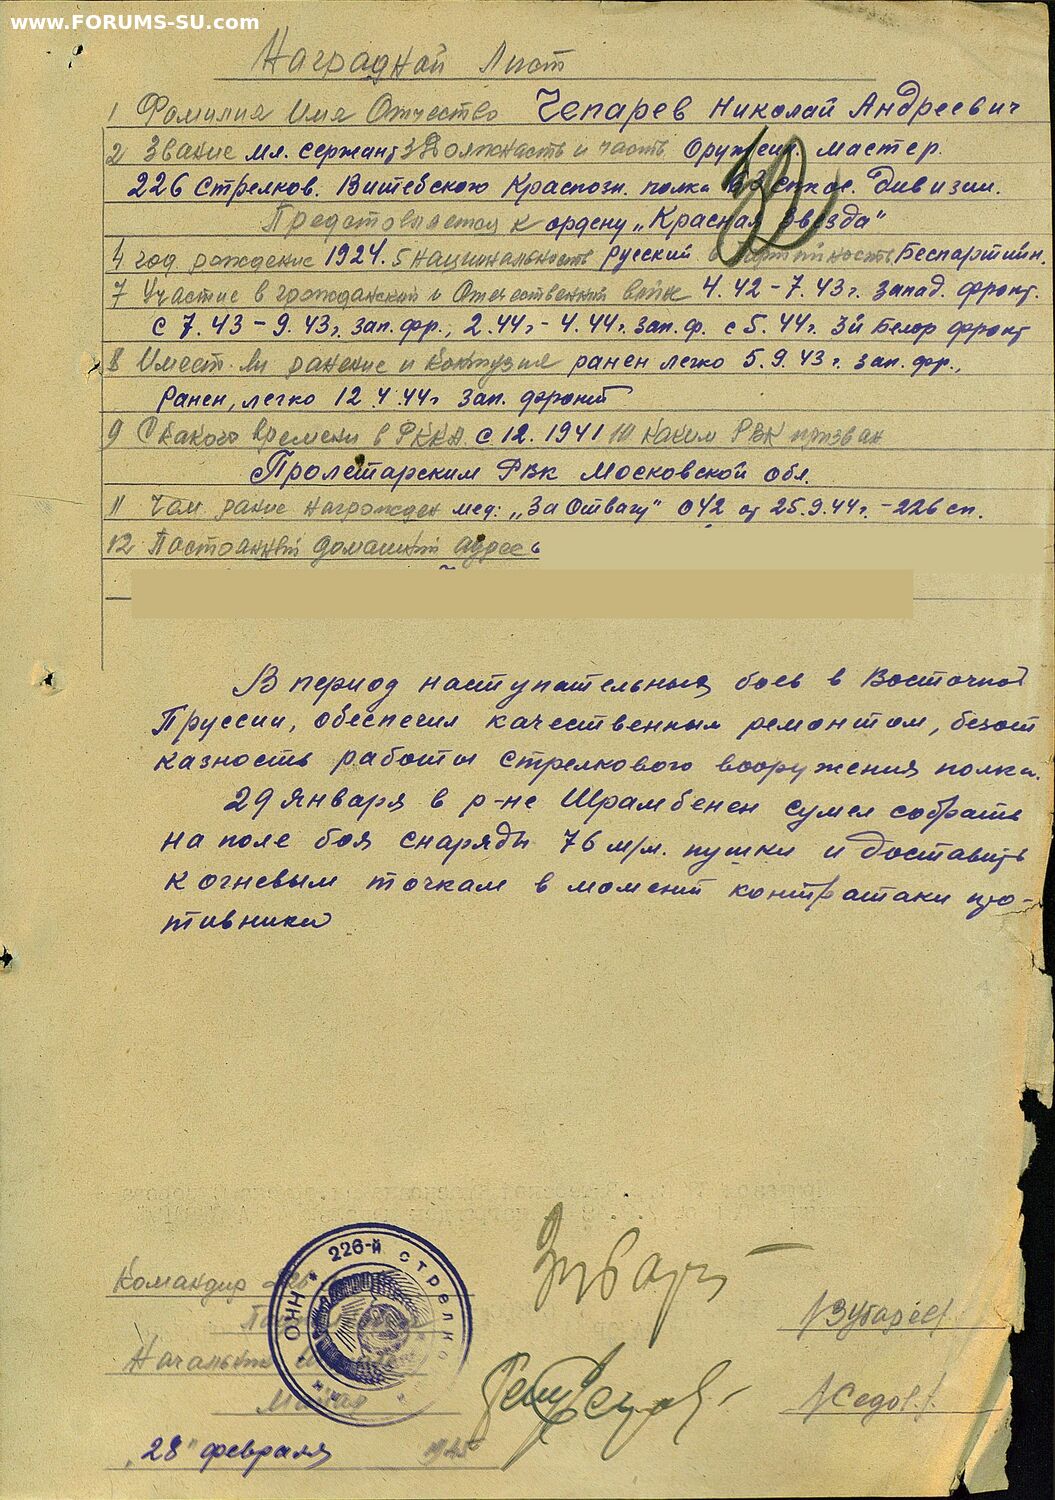 www.FORUMS-SU.com
Наградной Лист
1 Фамилия Имя Отчество Чепарев Николай Андреевич
2 Звание мл. сержант 3 Должность и часть Оружейн. мастер.
226 Стрелков. Витебского Краснозн. полка 63 дивизии.
Представляется к ордену „Красная Звезда"
4 год рождение 1924. 5 Национальность русский 6 Партийность Беспартийн.
7 Участие в гражданской и Отечественный войне 4.42 – 7.43 г. запад. фронт.
с 7.43 – 9.43 г. зап. фр., 2.44 г. – 4.44 г. зап. ф. с 5.44 г. 3й Белор фронт
8 Имеет ли ранение и контузия ранен легко 5.9.43 г. зап. фр.,
Ранен, легко 12.4.44 г зап. фронт
9 С какого времени в РККА. с 12.1941 10 каким РВК призван
Пролетарским РВК Московской обл.
11 Чем ранее награжден мед: „За Отвагу" 042 от 25.9.44 г. – 226 сп.
12 Постоянный домашний адрес
В период наступательных боев в Восточной
Пруссии, обеспечил качественным ремонтом, безот
казность работы стрелкового вооружения полка.
29 Января в р-не Шрамбенен сумел собрать
на поле боя снаряды 76 м/м. пушки и доставить
к огневым точкам в момент контратаки про-
тивника
226-й стрелко
Командир
/Зубарев/
Начальник
Майор
/Седов./
„28" февраля 1945